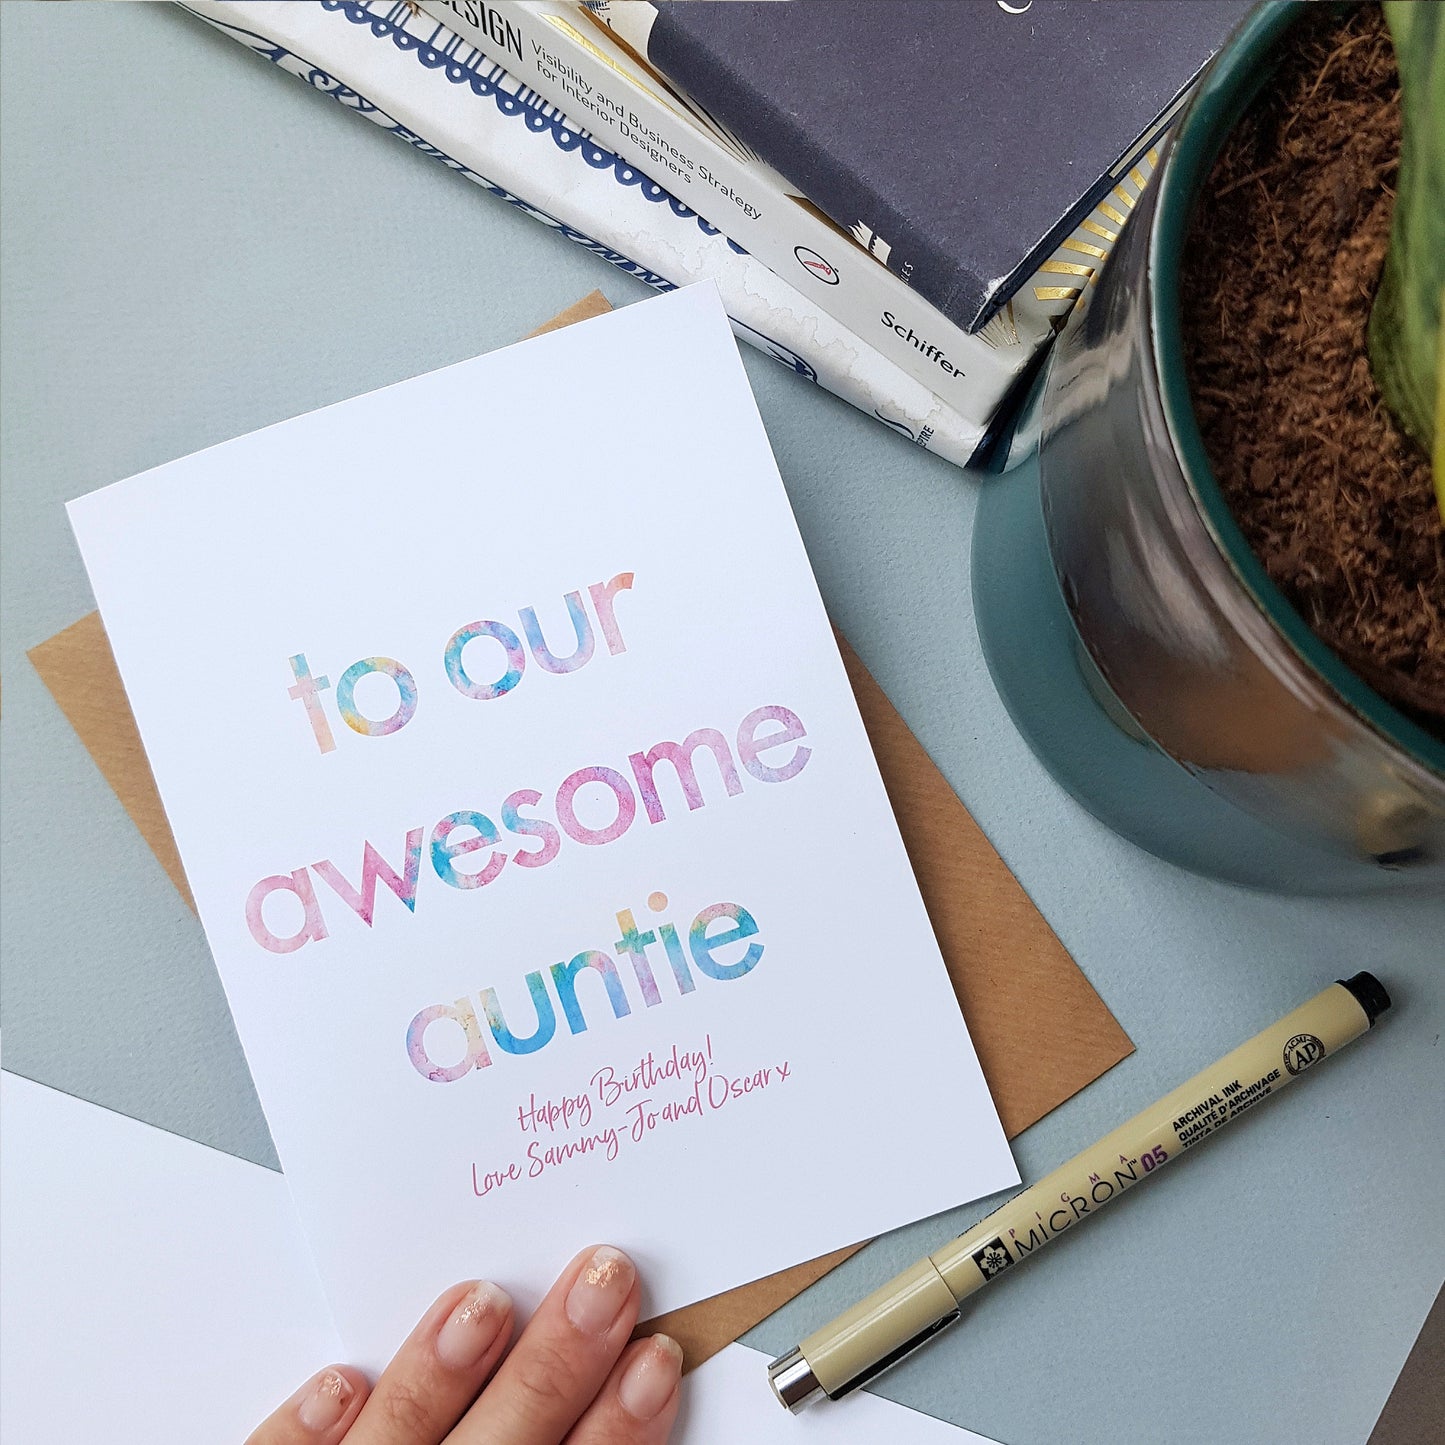 DESIGN
Visibility and Business Strategy
for Interior Designers
Schiffer
to our
awesome
auntie
Happy Birthday!
Love Sammy-Jo and Oscar x
PIGMA
MICRON™ 05
ARCHIVAL INK
QUALITÉ D'ARCHIVAGE
TINTA DE ARCHIVE
ACMI
AP